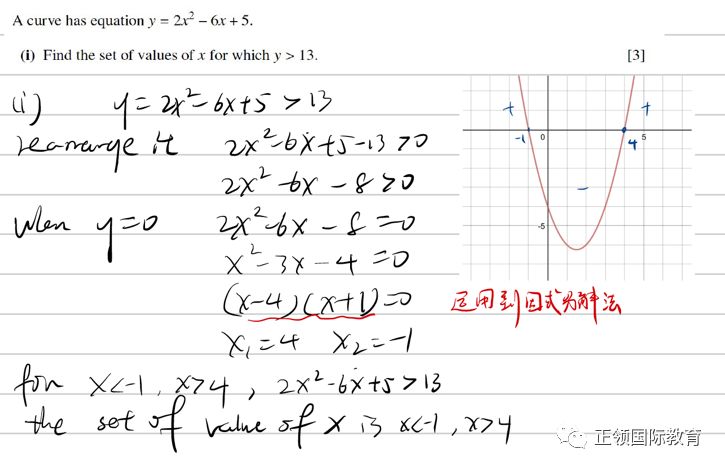 A curve has equation y = 2x² – 6x + 5.
(i) Find the set of values of x for which y > 13. [3]
(i) y = 2x²-6x+5 >13
rearrange it 2x²-6x+5-13 >0
2x²-6x-8>0
when y=0 2x²-6x-8=0
x²-3x-4=0
(x-4)(x+1)=0
x₁=4 x₂=-1
for x<-1, x>4, 2x²-6x+5>13
the set of value of x is x<-1, x>4
+ +
-1 0 4 5
-
-5
运用到因式分解法
正领国际教育